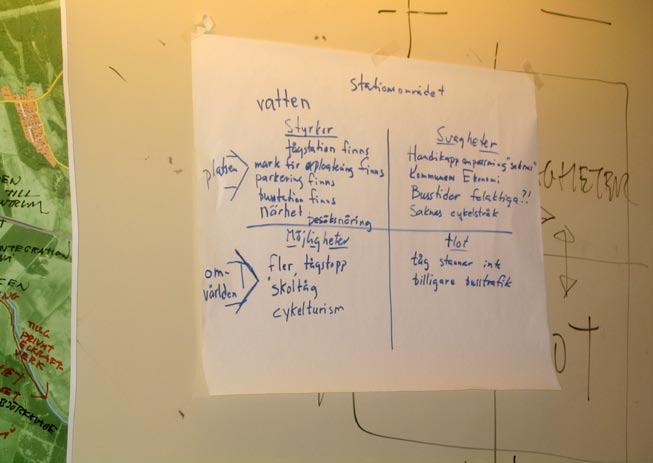 stationsområdet
vatten
Styrkor
tågstation finns
mark för exploatering finns
parkering finns
busstation finns
Närhet
besöksnäring
platsen
Svagheter
Handikappanpassning "saknas"
Kommunens Ekonomi
Busstider felaktiga?!
Saknas cykelstråk
Möjligheter
fler tågstopp
"skoltåg
cykelturism
om-
världen
Hot
tåg stannar ink
billigare busstrafik
TILL
INTEGRATION
TILLG
PRIVAT